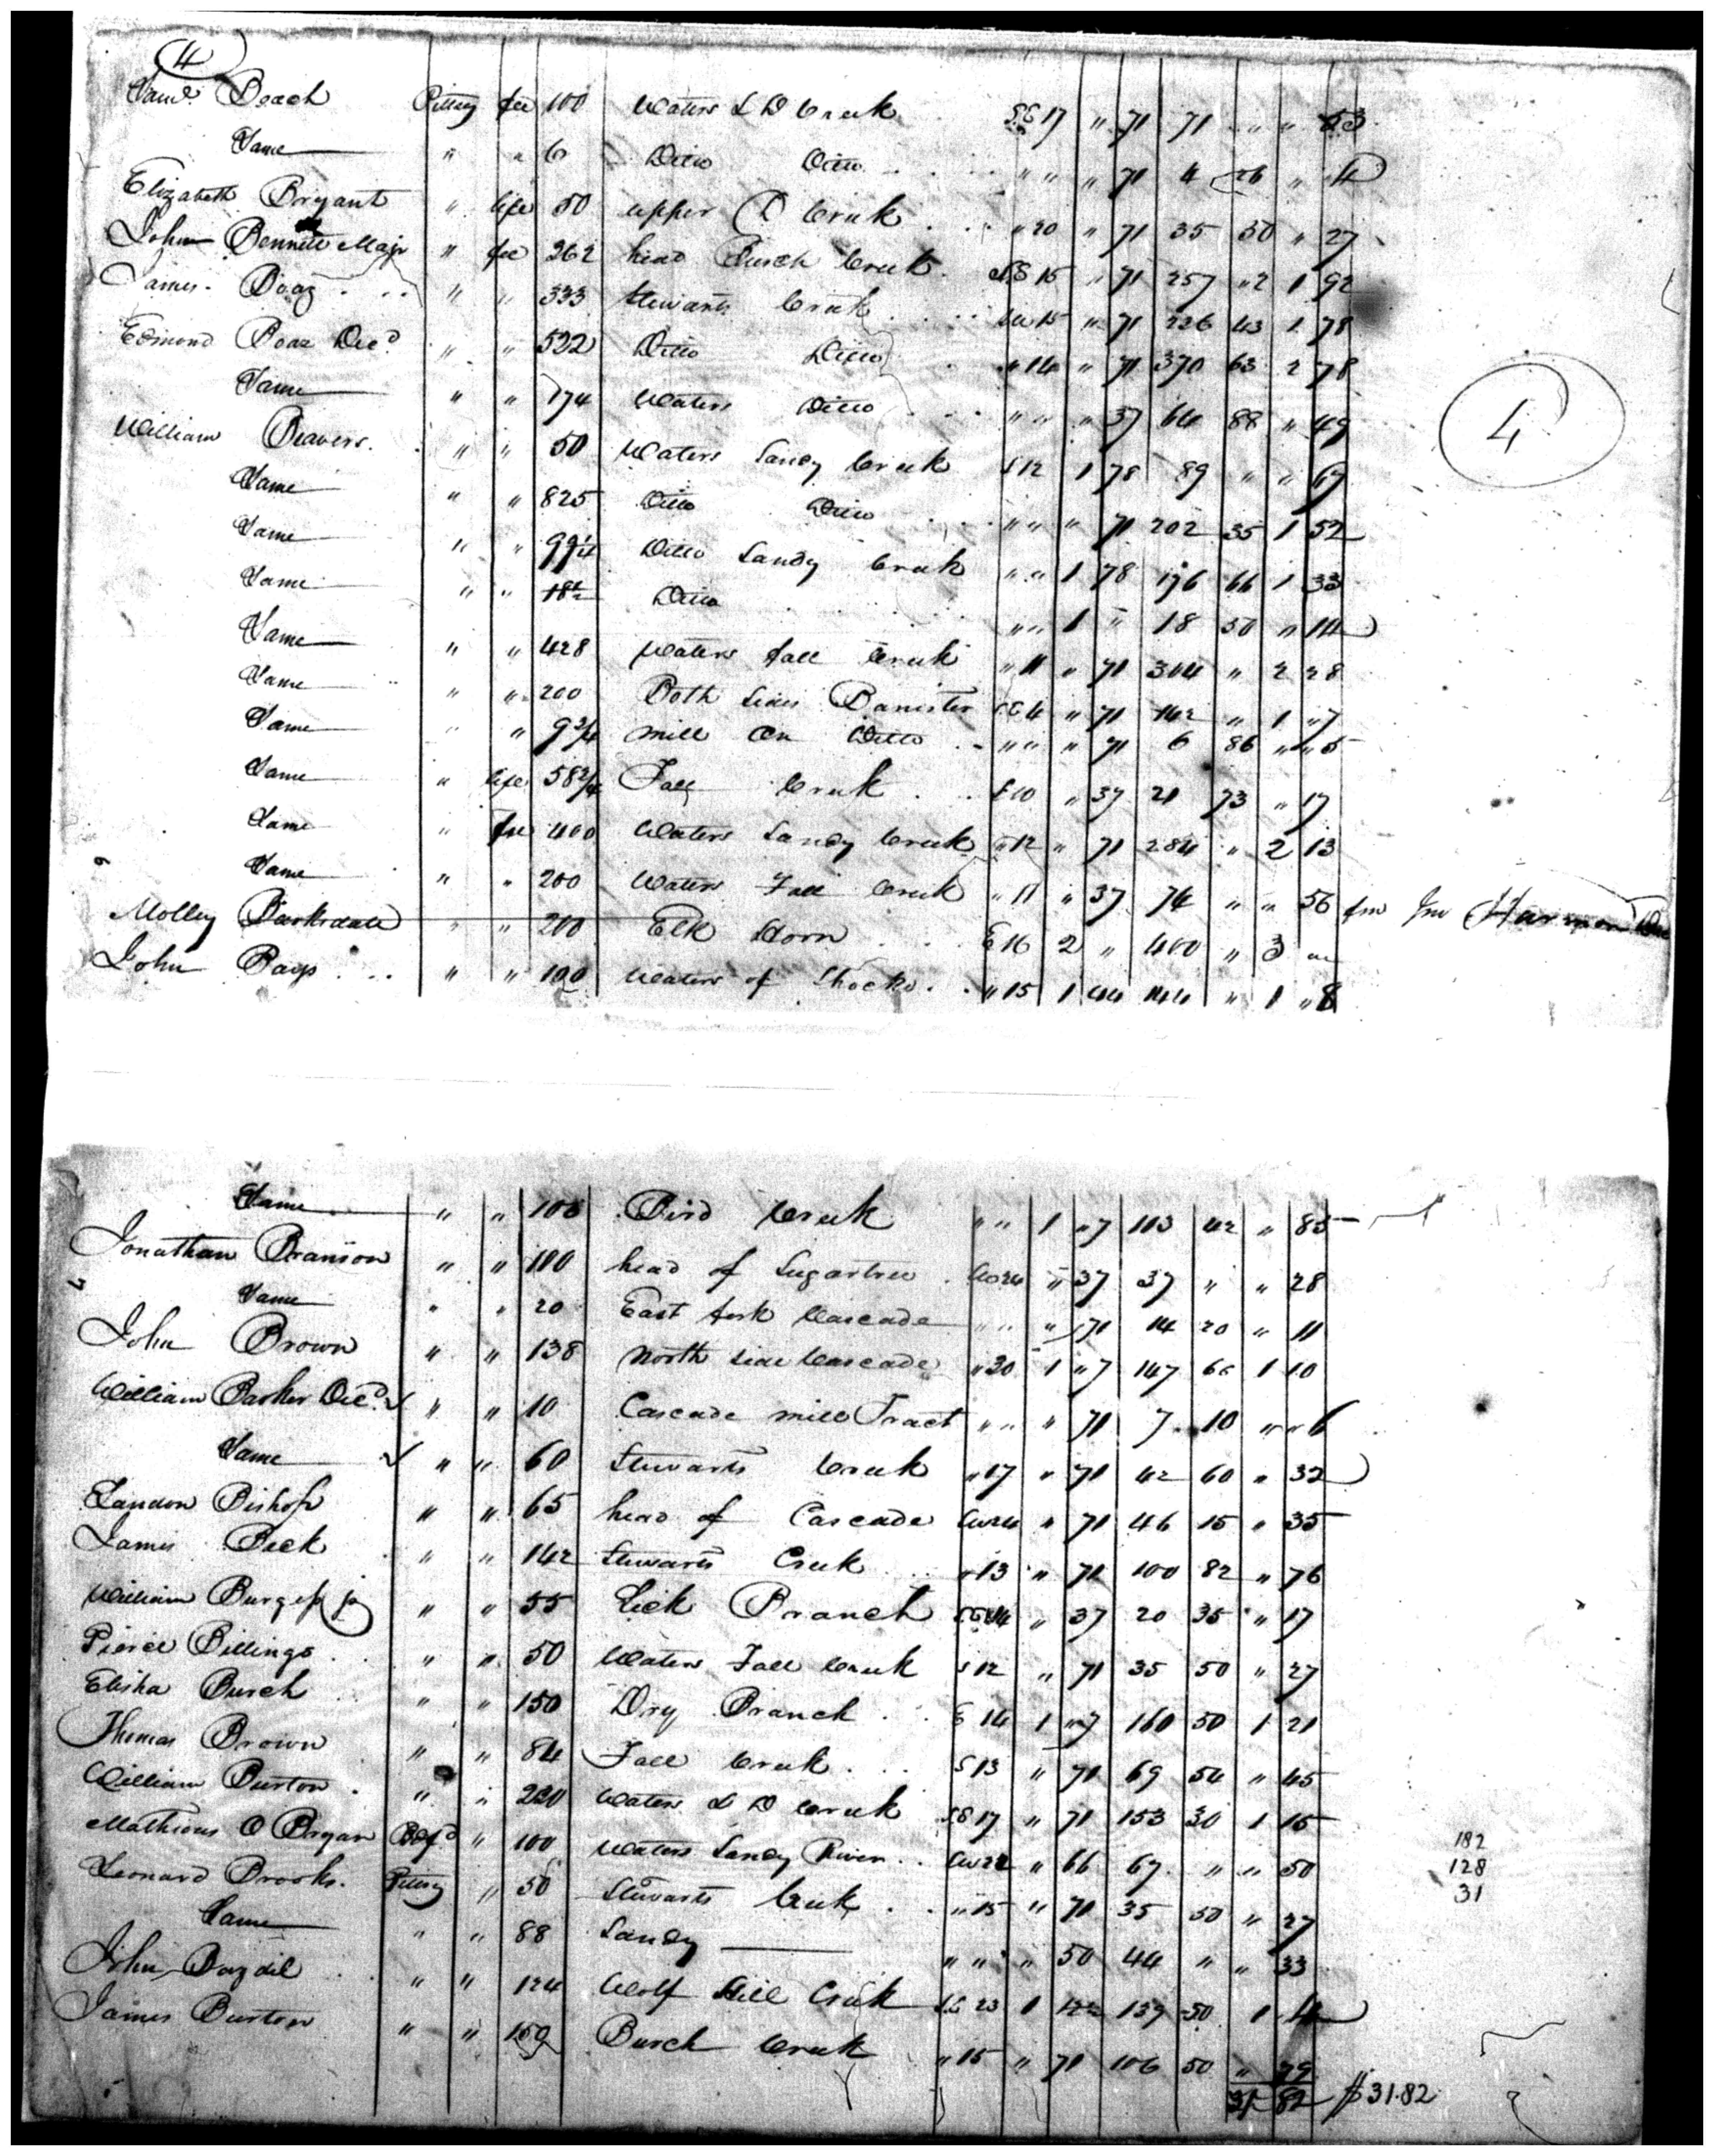 4
Saml. Beach Pittsy fee 100 Waters L D Creek SE 17 " 71 71 " " 53
Same " " 6 Ditto Ditto " " " 71 4 26 " 4
Elizabeth Bryant " life 50 upper D Creek " 20 " 71 35 50 " 27
John Bennett Majr " fee 262 head Burch Creek SE 15 " 71 257 " 2 1 92
James Boaz " " 333 Stewarts Creek SW 15 " 71 236 43 1 78
Edmond Boaz Decd " " 522 Ditto Ditto " 14 " 71 370 63 2 78
Same " " 174 Waters Ditto " " " 37 64 88 " 49
William Beavers " " 50 Waters Sandy Creek S 12 1 78 89 " " 67
Same " " 825 Ditto Ditto " " " 71 202 35 1 52
Same " " 99 1/4 Ditto Sandy Creek " " 1 78 176 66 1 33
Same " " 18 1/2 Ditto " " 1 " 18 50 " 14
Same " " 428 Waters fall Creek " 11 " 71 304 " 2 28
Same " " 200 Both sides Banister SE 4 " 71 142 " 1 " 7
Same " " 9 3/4 mill on Ditto " " " 71 6 86 " " 5
Same " life 58 3/4 Fall Creek S 10 " 37 21 73 " 17
Same " fee 400 Waters Sandy Creek " 12 " 71 284 " 2 13
Same " " 200 Waters Fall Creek " 11 " 37 74 " " 56 fm Jno Harmon
Molley Barksdale " " 200 Elk Horn E 16 2 " 400 " 3 "
John Bays " " 100 Waters of Shocko " 15 1 44 144 " 1 " 8
4
Same " " 106 Bird Creek " " 1 " 7 113 42 " 85
Jonathan Branson " " 100 head of Sugartree W 24 " 37 37 " " 28
Same " " 20 East fork Cascade " " " 71 14 20 " 11
John Brown " " 138 North side Cascade " 20 1 " 7 147 66 1 10
William Barker Decd " " 10 Cascade mill Tract " " " 71 7 10 " " 6
Same " " 60 Stewarts Creek " 17 " 71 42 60 " 32
Landon Bishop " " 65 head of Cascade W 24 " 71 46 15 " 35
James Beck " " 142 Stewarts Creek " 13 " 71 100 82 " 76
William Burgess jr " " 55 Lick Branch SE 14 " 37 20 35 " 17
Pierce Billings " " 50 Waters Fall Creek S 12 " 71 35 50 " 27
Elisha Burch " " 150 Dry Branch E 14 1 " 7 160 50 1 21
Thomas Brown " " 84 Fall Creek S 13 " 71 69 54 " 45
William Burton " " 220 Waters L D Creek SE 17 " 71 153 30 1 15
Mathious O Bryan Bedfd " 100 Waters Sandy River W 22 " 66 67 " " 50
Leonard Brooks Pittsy " 50 Stewarts Creek " 15 " 71 35 50 " 27
Same " " 88 Sandy " " " 50 44 " " 33
John " " 124 Wolf Hill Creek SE 23 1 139 50 1 4
James Burton " " 150 Burch Creek " 15 " 71 106 50 " 79
31 82 $31.82
182
128
31